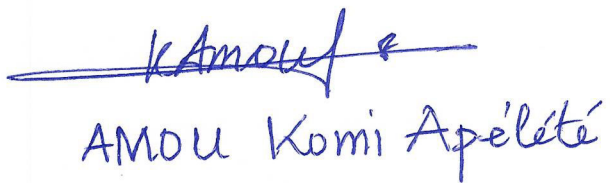 KAmouf
AMOU Komi Apélété